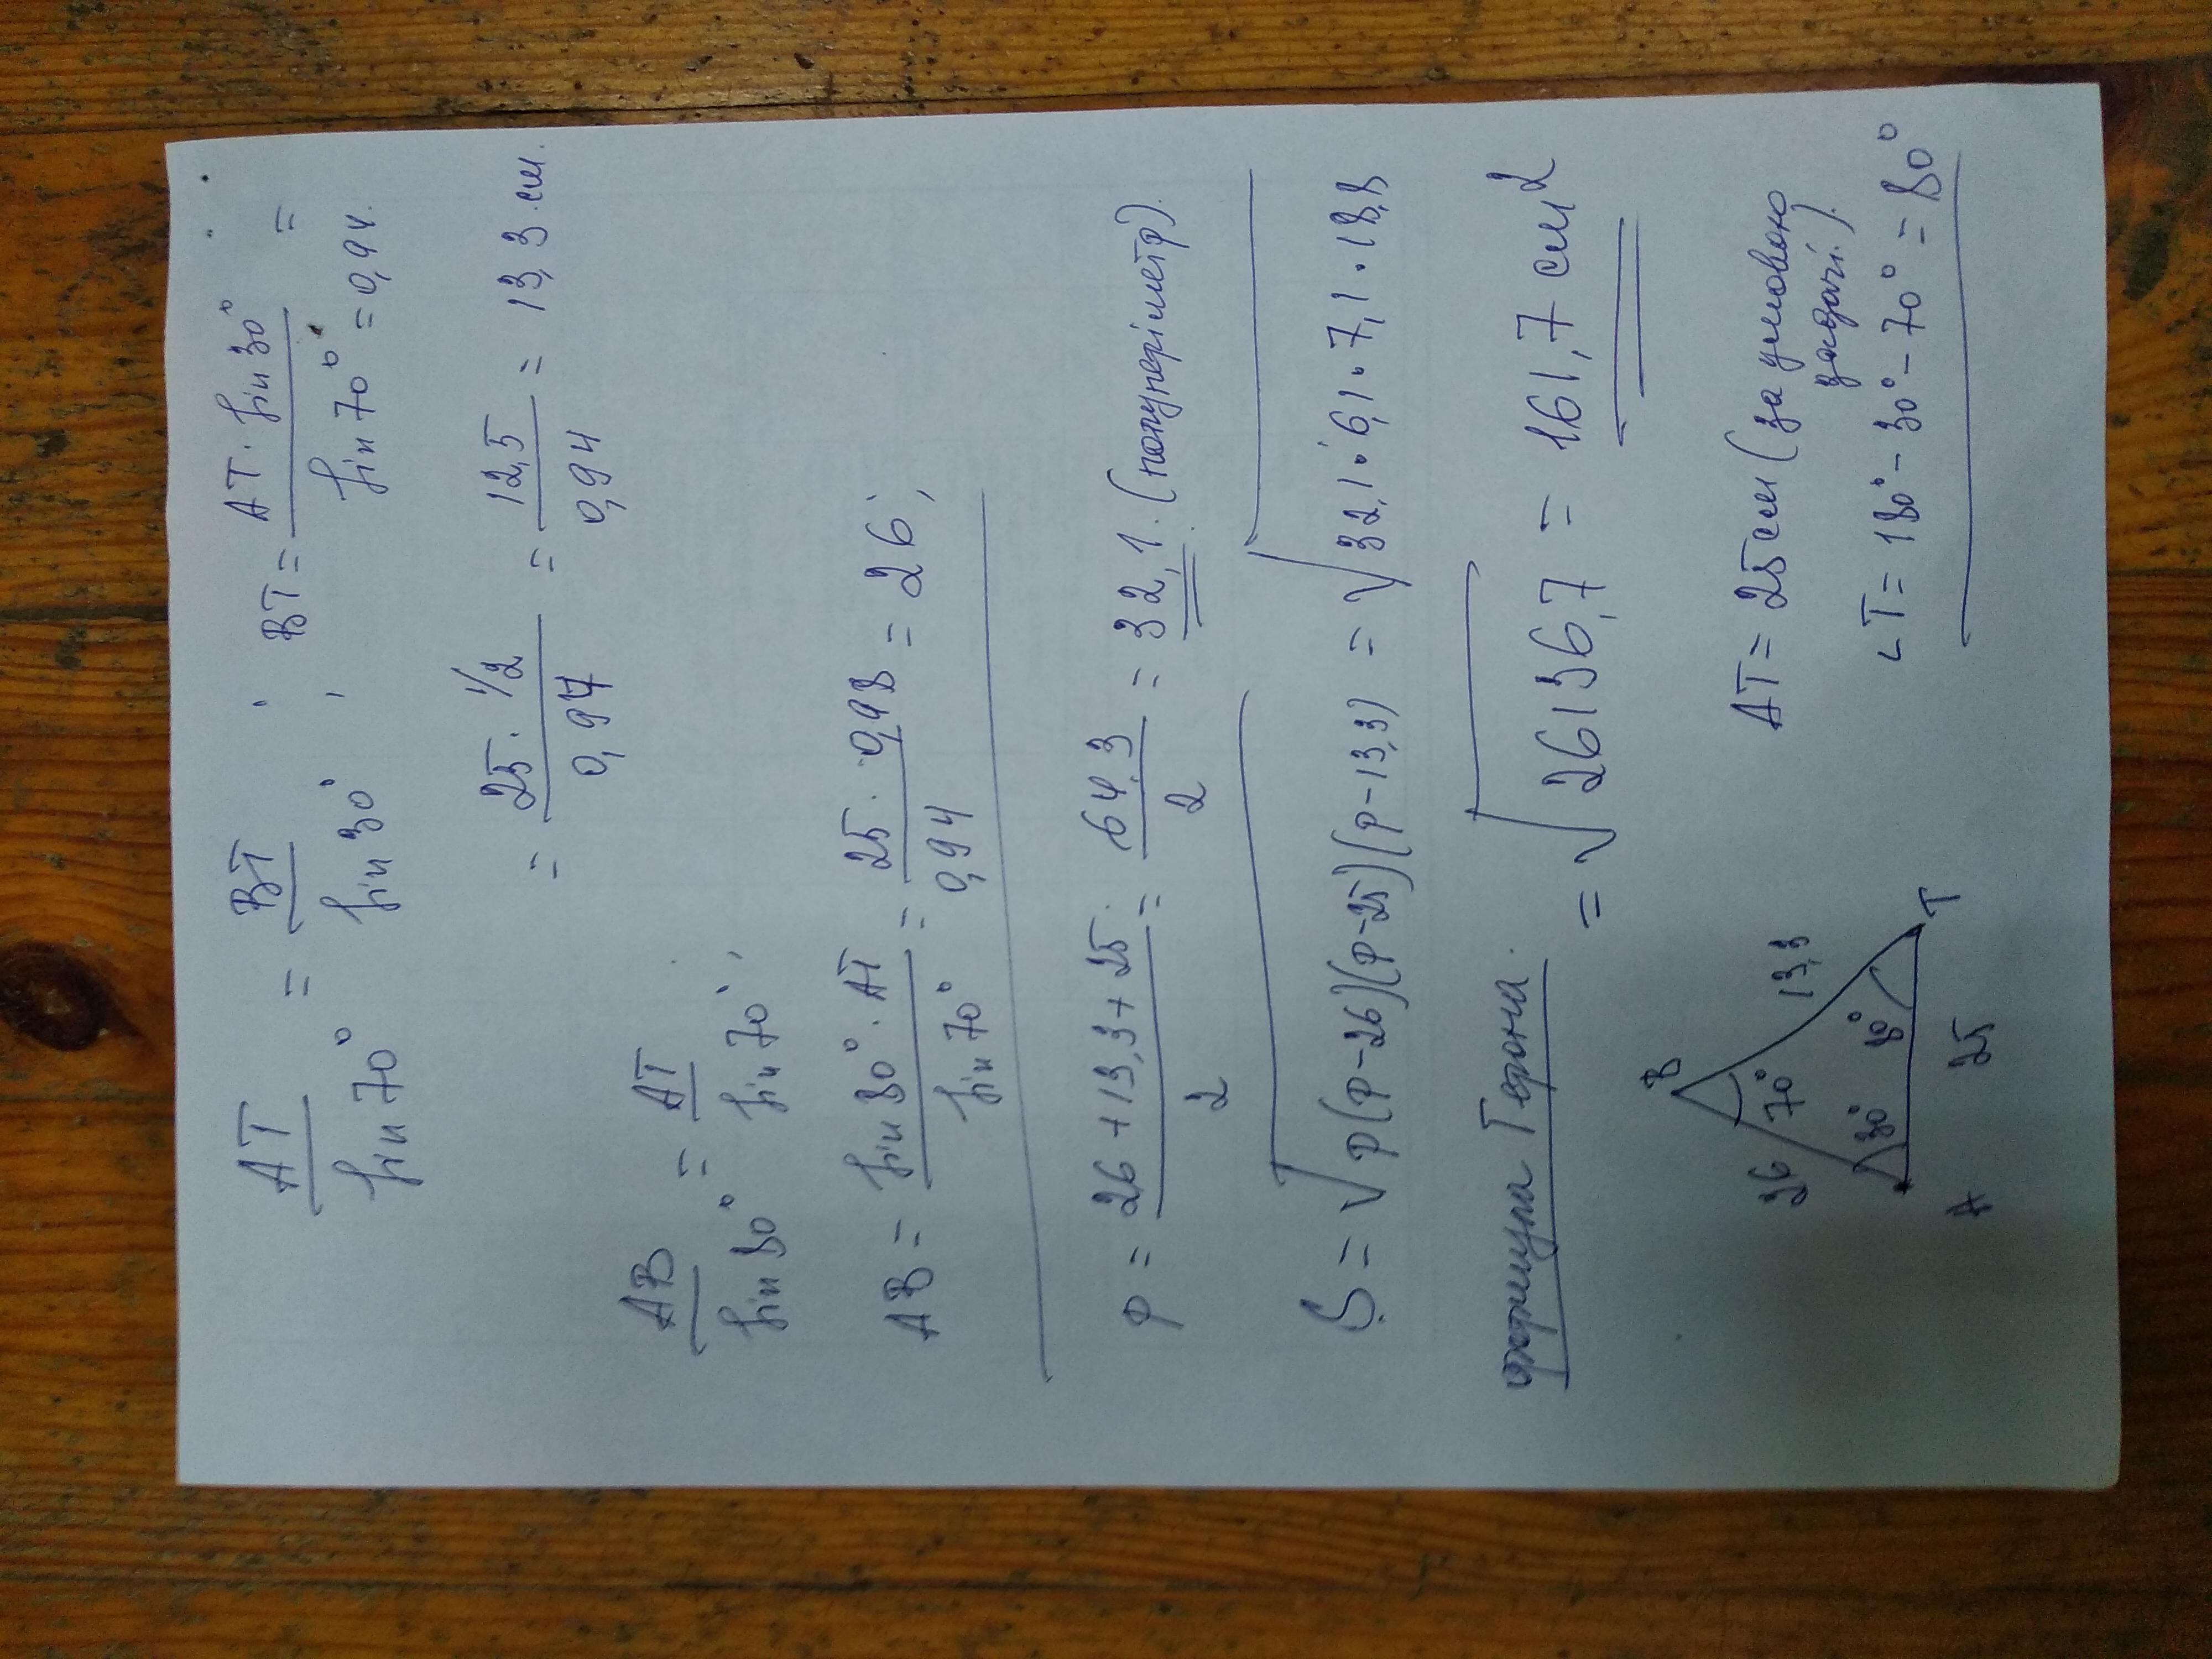 AT/sin70° = BT/sin30° ; BT = AT · sin30°/sin70° =
sin70° = 0,94.
= 25 · 1/2/0,94 = 12,5/0,94 = 13,3 см.
AB/sin80° = AT/sin70° ;
AB = sin80° · AT/sin70° = 25 · 0,98/0,94 = 26 ;
P = 26 + 13,3 + 25/2 = 64,3/2 = 32,1. (полупериметр).
S = √p(p-26)(p-25)(p-13,3) = √32,1 · 6,1 · 7,1 · 18,8
формула Герона. = √26136,7 = 161,7 см2
B
26 70° 13,3
30° 80°
A 25 T
AT = 25 см (за умовою
задачі.)
∟T = 180° - 30° - 70° = 80°